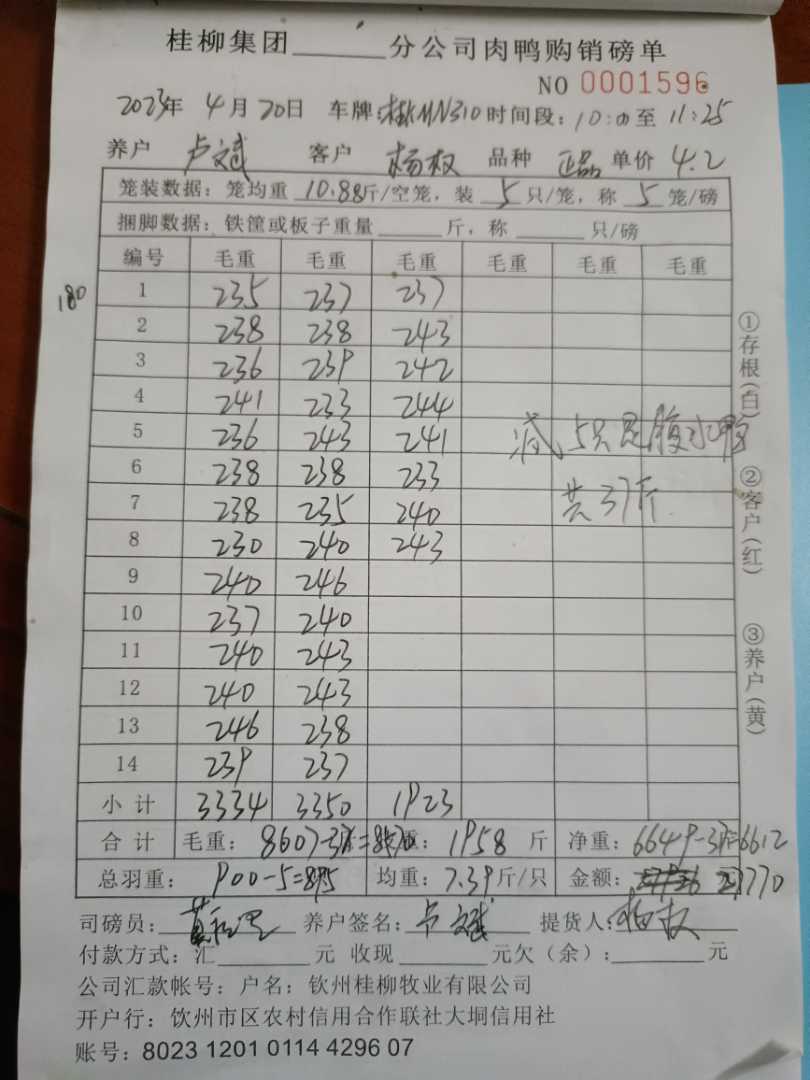 桂柳集团______分公司肉鸭购销磅单
NO 0001596
2023年 4月20日 车牌:桂KMN310 时间段:10:00至11:25
养户 卢文斌 客户 杨权 品种 正品 单价 4.2
笼装数据:笼均重 10.88斤/空笼,装 5 只/笼,称 5 笼/磅
捆脚数据:铁筐或板子重量______斤,称______只/磅
编号 毛重 毛重 毛重 毛重 毛重 毛重
180
1 235 237 237
2 238 238 243
3 236 239 242
4 241 233 244
5 236 243 241
减5只 腹水鸭
6 238 238 233
共37斤
7 238 235 240
8 230 240 243
9 240 246
10 237 240
11 240 243
12 240 243
13 246 238
14 239 237
小计 3334 3350 1923
合计 毛重:8607-37=8570 重:1958 斤 净重:6649-37=6612
总羽重:900-5=895 均重:7.39斤/只 金额:27770
司磅员: 养户签名:卢文斌 提货人:杨权
付款方式:汇______元 收现______元欠(余):______元
公司汇款帐号:户名:钦州桂柳牧业有限公司
开户行:钦州市区农村信用合作联社大垌信用社
账号:8023 1201 0114 4296 07
①存根(白) ②客户(红) ③养户(黄)